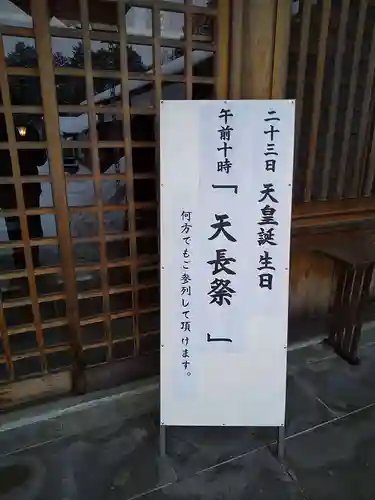 二十三日 天皇誕生日
午前十時
「天長祭」
何方でもご参列して頂けます。